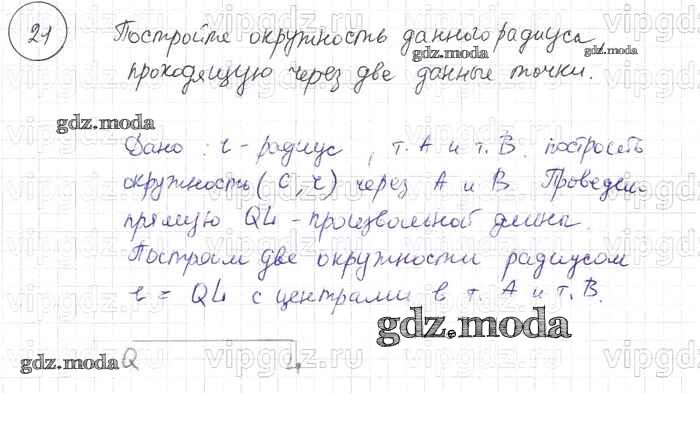 21 Постройте окружность данного радиуса,
проходящую через две данные точки.
gdz.moda
gdz.moda
gdz.moda
Дано: r - радиус, т. А и т. В. построить
окружность (С, r) через А и В. Проведем
прямую QL - произвольной длины.
Построим две окружности радиусом
r = QL с центрами в т. А и т. В.
gdz.moda
gdz.moda Q L
vipgdz.ru